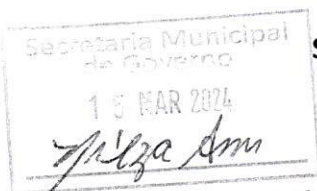 Secretaria Municipal
de Governo
15 MAR 2024
S